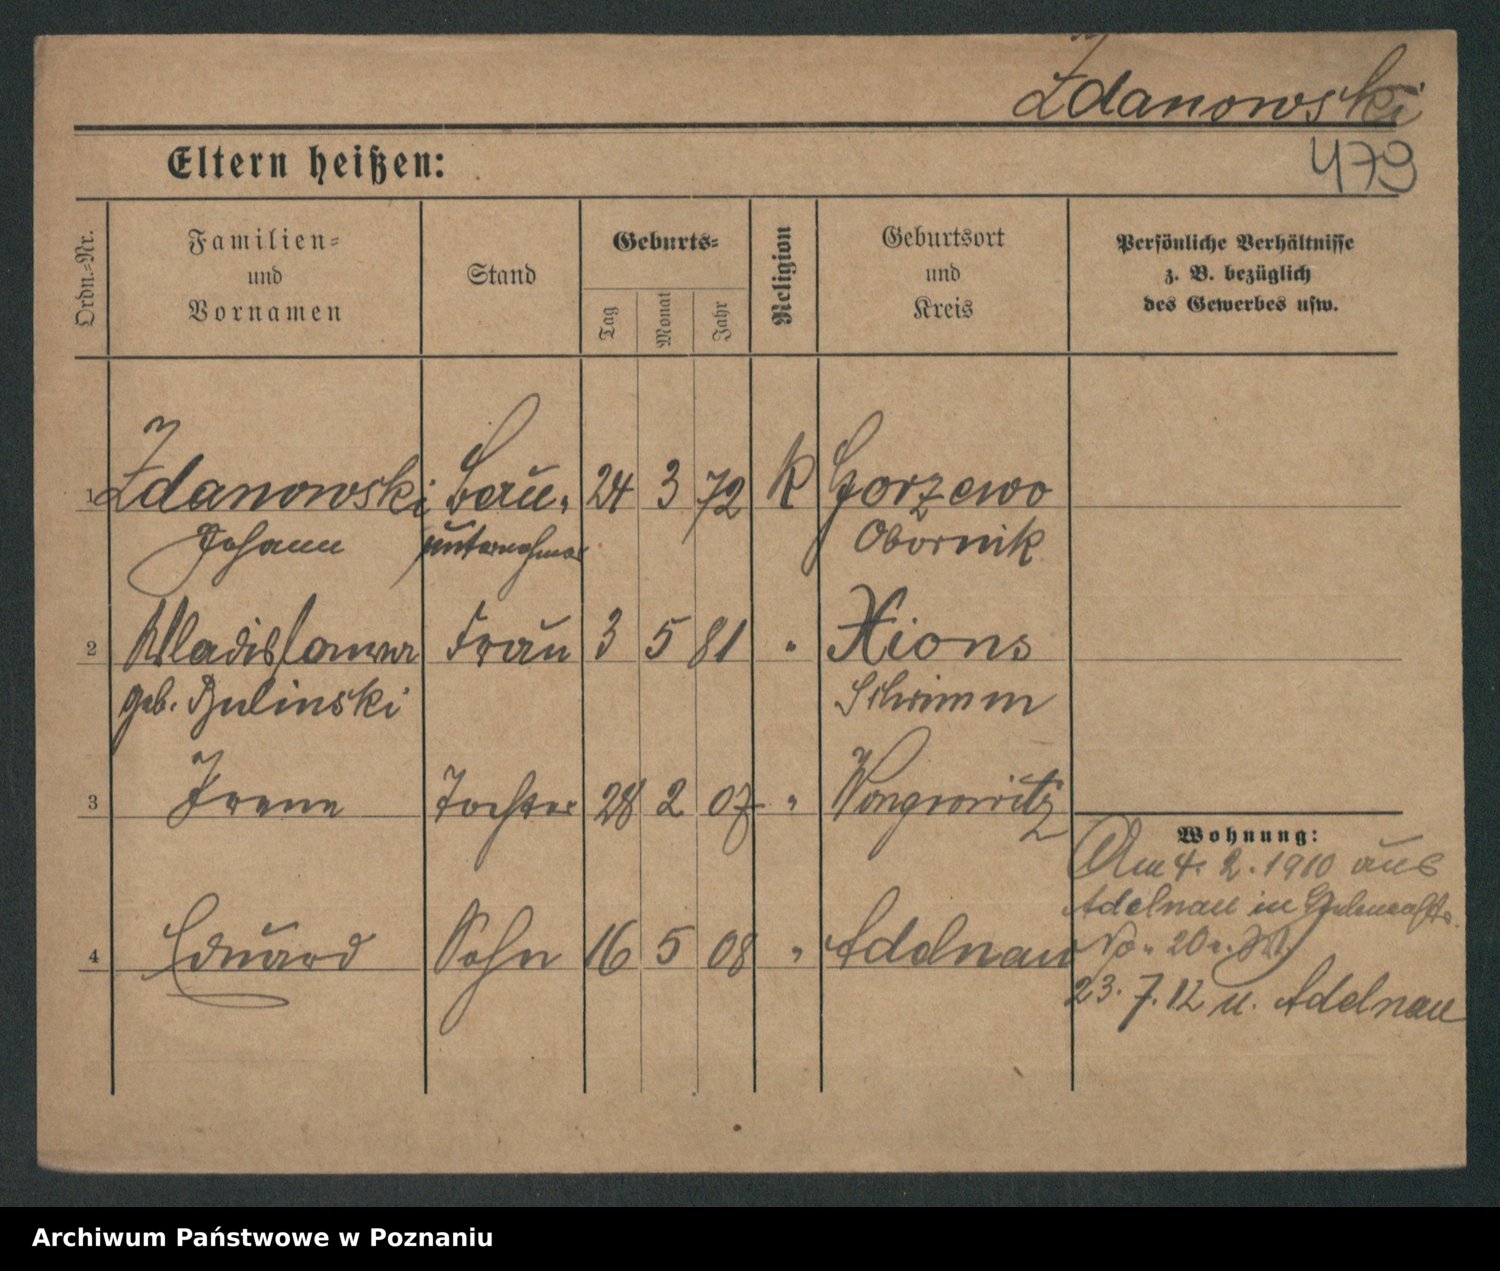 Zdanowski
Eltern heißen:
479
Ordn.=Nr.
Familien=
und
Vornamen
Stand
Geburts=
Tag
Monat
Jahr
Religion
Geburtsort
und
Kreis
Persönliche Verhältnisse
z. B. bezüglich
des Gewerbes usw.
1 Zdanowski Bau- 24 3 72 K Gorzewo
Johann unternehmer Obornik
2 Wladislawa Frau 3 5 81 " Xions
geb. Bulinski Schrimm
3 Irene Tochter 28 2 07 " Wongrowitz
Wohnung:
Am 4. 2. 1910 aus
Adelnau in
4 Eduard Sohn 16 5 08 " Adelnau
No. 20
23. 7. 12 n. Adelnau
Archiwum Państwowe w Poznaniu